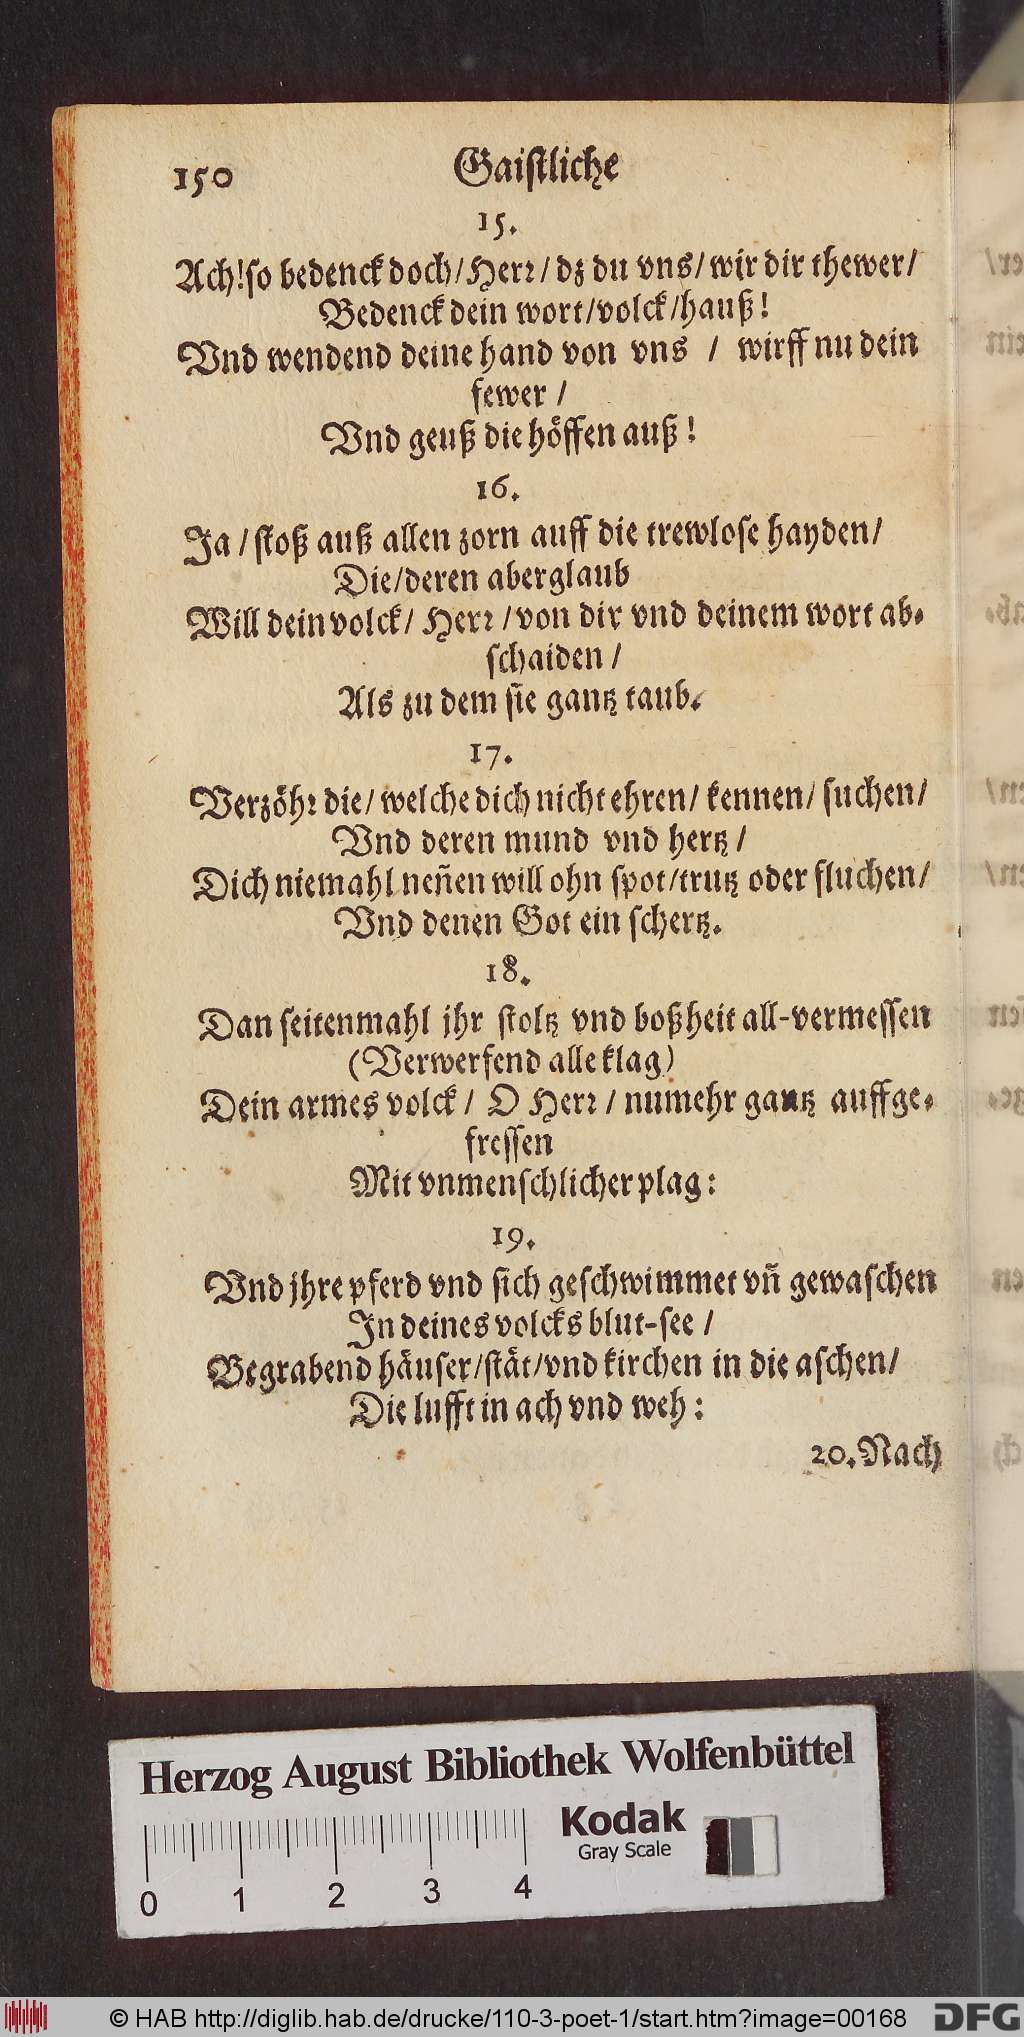 150 Gaistliche
15.
Ach! so bedenck doch / Herr / dz du vns / wir dir thewer /
Bedenck dein wort / volck / hauß!
Vnd wendend deine hand von vns / wirff nu dein
fewer /
Vnd geuß die höffen auß!
16.
Ja / stoß auß allen zorn auff die trewlose hayden /
Die / deren aberglaub
Will dein volck / Herr / von dir vnd deinem wort ab-
schaiden /
Als zu dem sie gantz taub.
17.
Verzöhr die / welche dich nicht ehren / kennen / suchen /
Vnd deren mund vnd hertz /
Dich niemahl neñen will ohn spot / trutz oder fluchen /
Vnd denen Got ein schertz.
18.
Dan seitenmahl jhr stoltz vnd boßheit all-vermessen
(Verwerfend alle klag)
Dein armes volck / O Herr / numehr gantz auffge-
fressen
Mit vnmenschlicher plag:
19.
Vnd jhre pferd vnd sich geschwimmet vñ gewaschen
In deines volcks blut-see /
Begrabend häuser / stät / vnd kirchen in die aschen /
Die lufft in ach vnd weh:
20. Nach
Herzog August Bibliothek Wolfenbüttel
Kodak
Gray Scale
0 1 2 3 4
© HAB http://diglib.hab.de/drucke/110-3-poet-1/start.htm?image=00168
DFG